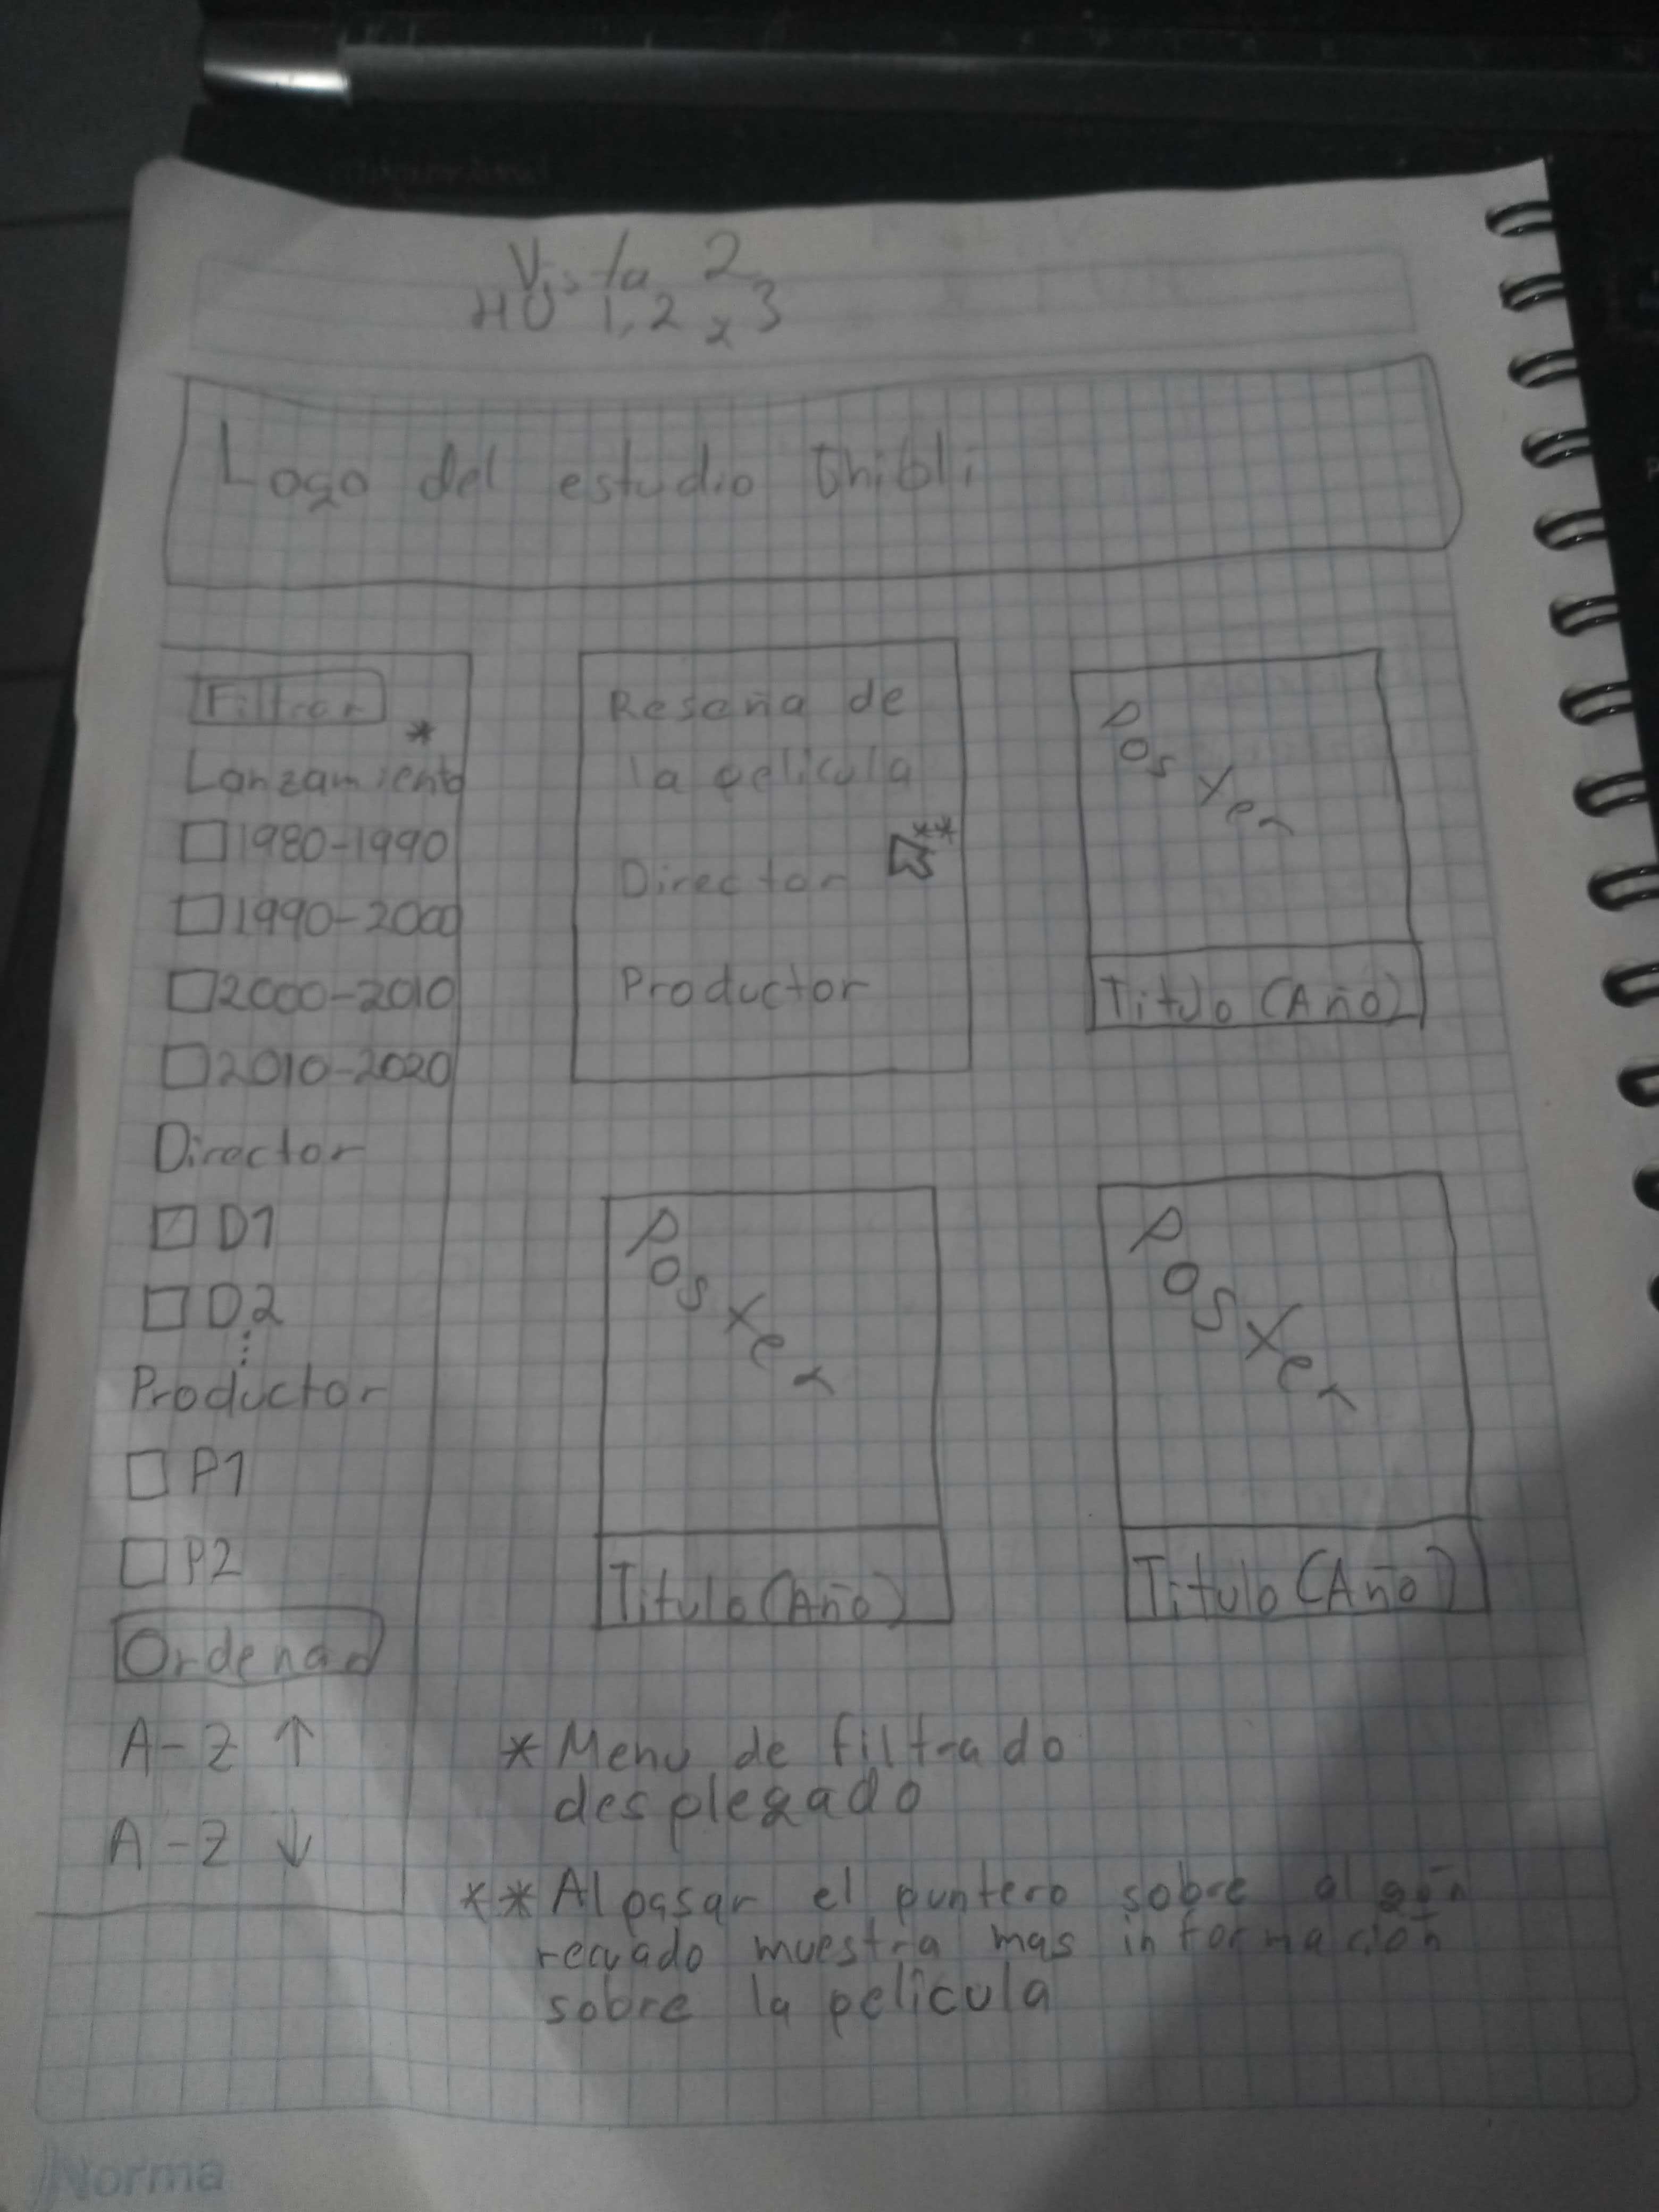 Vista 2
HU 1, 2 y 3
Logo del estudio Ghibli
Filtrar *
Lanzamiento
1980-1990
1990-2000
2000-2010
2010-2020
Director
D1
D2
...
Productor
P1
P2
Ordenad
A-Z ↑
A-Z ↓
Reseña de
la pelicula
Director **
Productor
Poster
Titulo (Año)
Poster
Titulo (Año)
Poster
Titulo (Año)
* Menu de filtrado
desplegado
** Al pasar el puntero sobre algún
recuado muestra mas información
sobre la pelicula
Norma